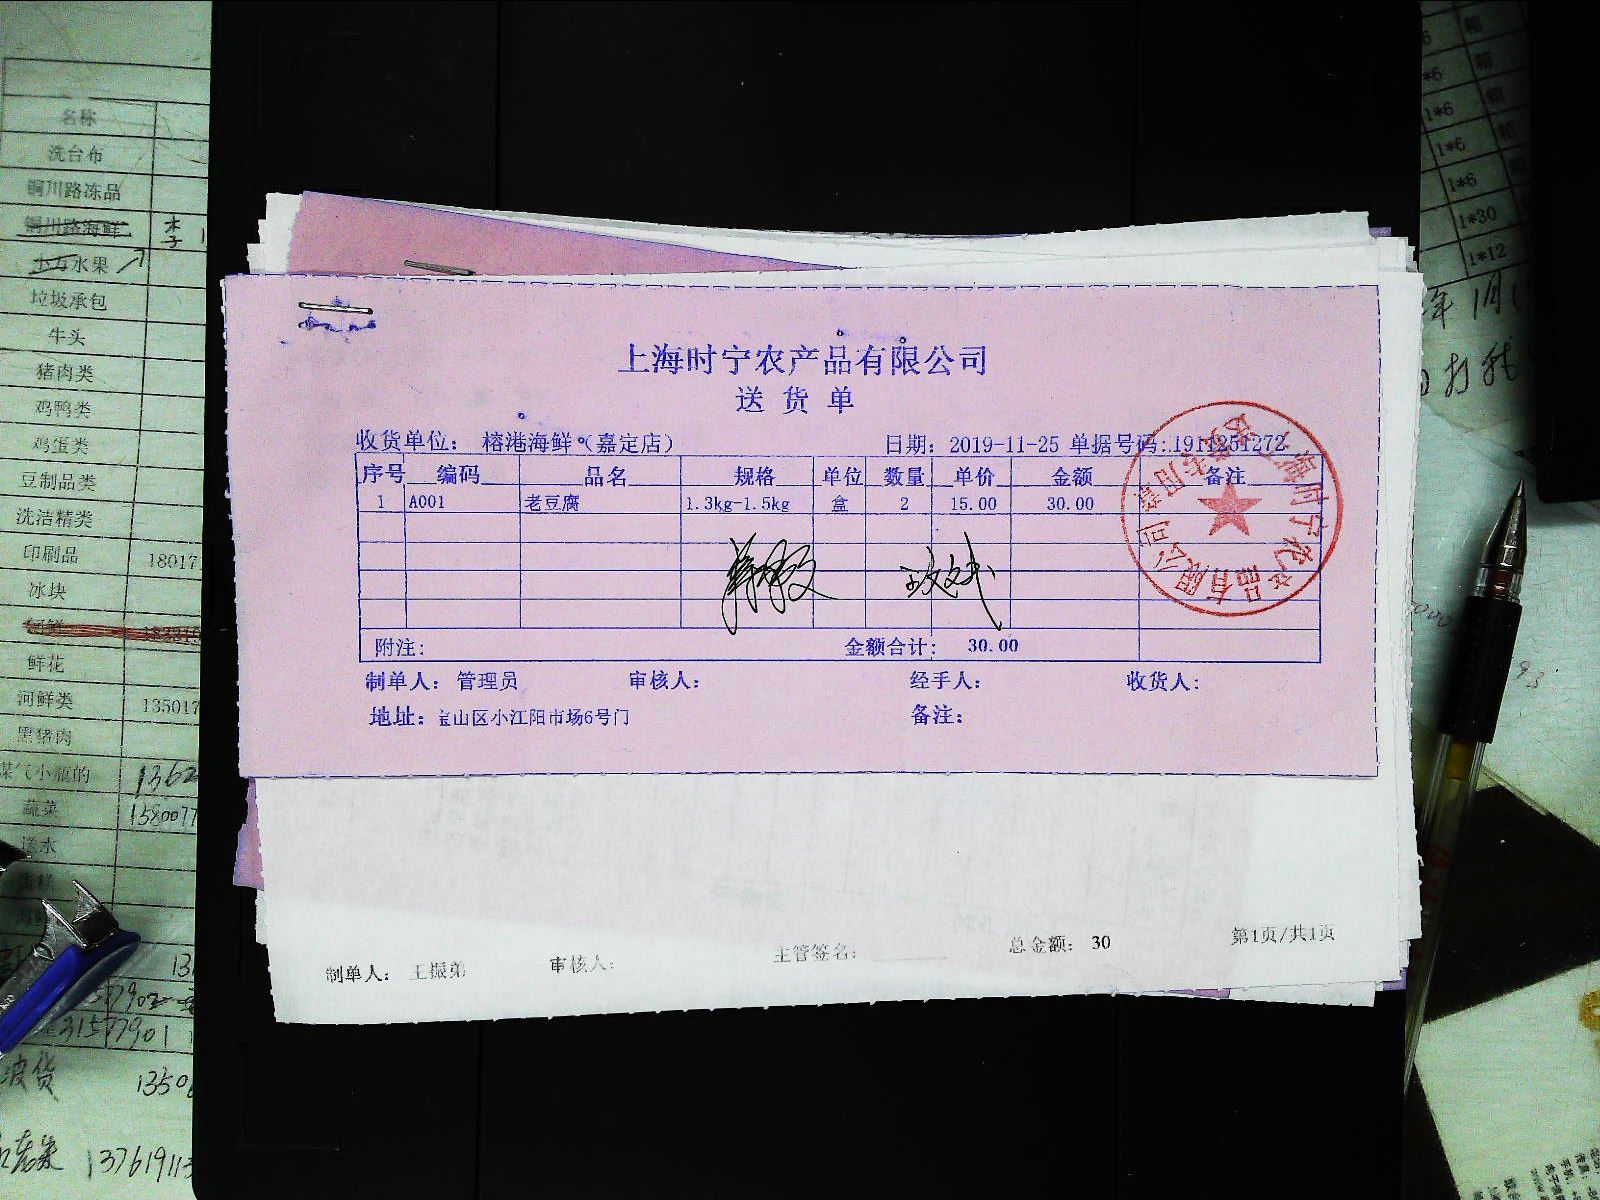 上海时宁农产品有限公司
送货单
收货单位： 榕港海鲜（嘉定店） 日期：2019-11-25 单据号码:1911251272
序号 编码 品名 规格 单位 数量 单价 金额 备注
1 A001 老豆腐 1.3kg-1.5kg 盒 2 15.00 30.00
附注： 金额合计： 30.00
制单人：管理员 审核人： 经手人： 收货人：
地址：宝山区小江阳市场6号门 备注：
上海时宁农产品有限公司
制单人： 王振弟 审核人： 主管签名： 总金额： 30 第1页/共1页
名称
洗台布
铜川路冻品
铜川路海鲜 李
水果
垃圾承包
牛头
猪肉类
鸡鸭类
鸡蛋类
豆制品类
洗洁精类
印刷品 18017
冰块
鲜花
河鲜类 135017
黑猪肉
煤气小瓶的 1362
蔬菜 1580077
送水
31577901
1350
137619113
1*6
1*6
1*6
1*30
1*12